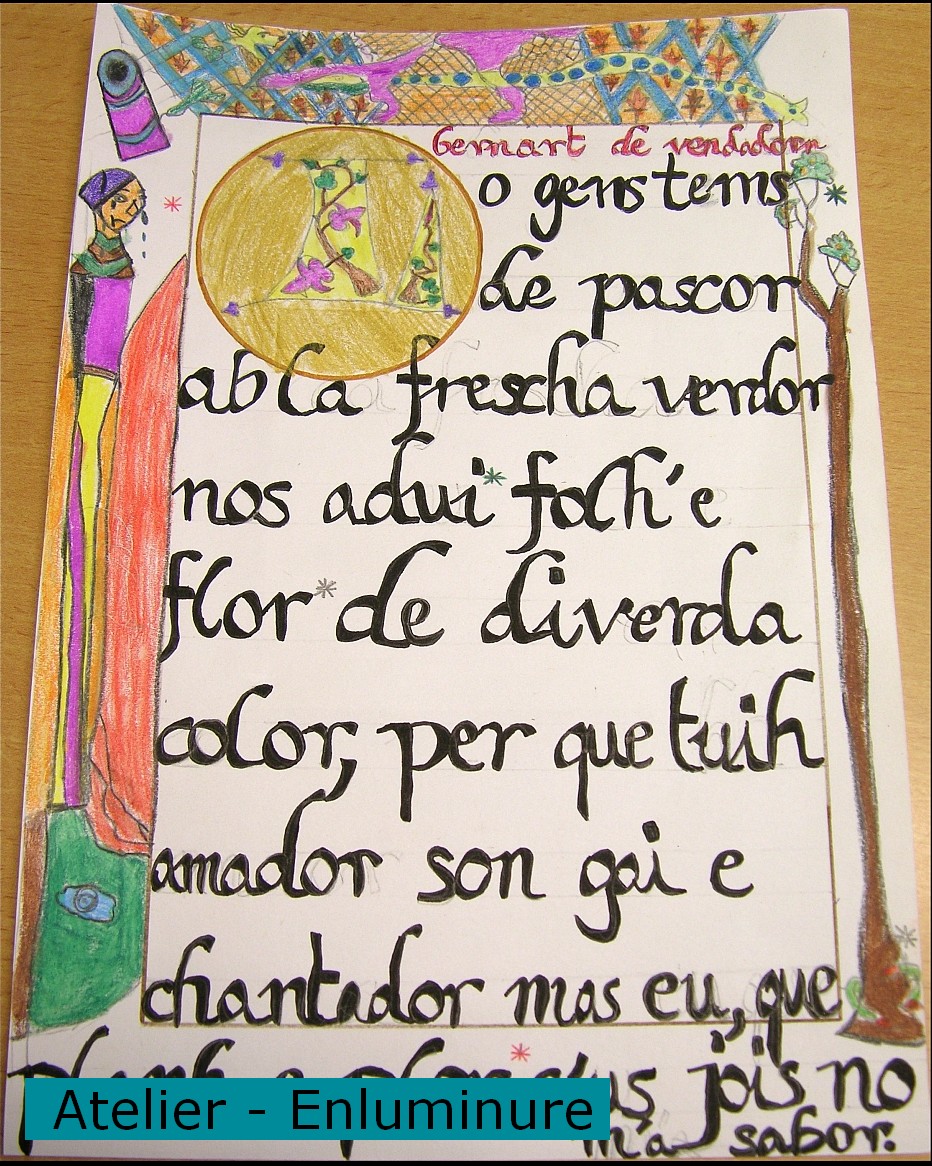 Bernart de vendadorn
o gens tems
de pascor
ab la frescha verdor
nos adui folh'e
flor de diverda
color, per que tuih
amador son gai e
chantador mas eu, que
jois no
m'a sabor.
Atelier - Enluminure